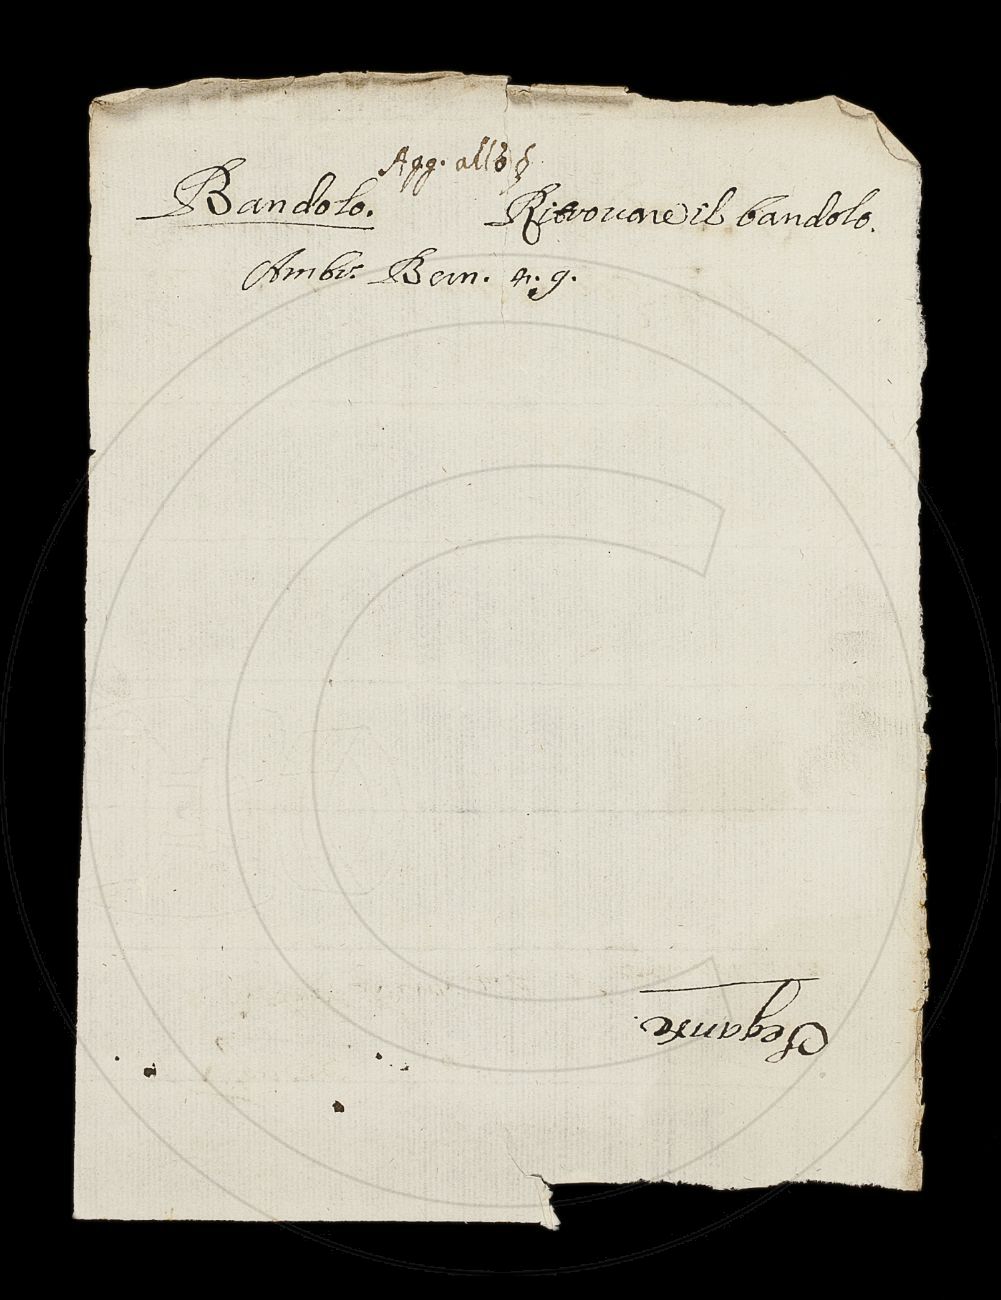 Agg. allo §
Bandolo. Ritrovare il bandolo.
Ambr. Bern. 4. 9.
Elegante